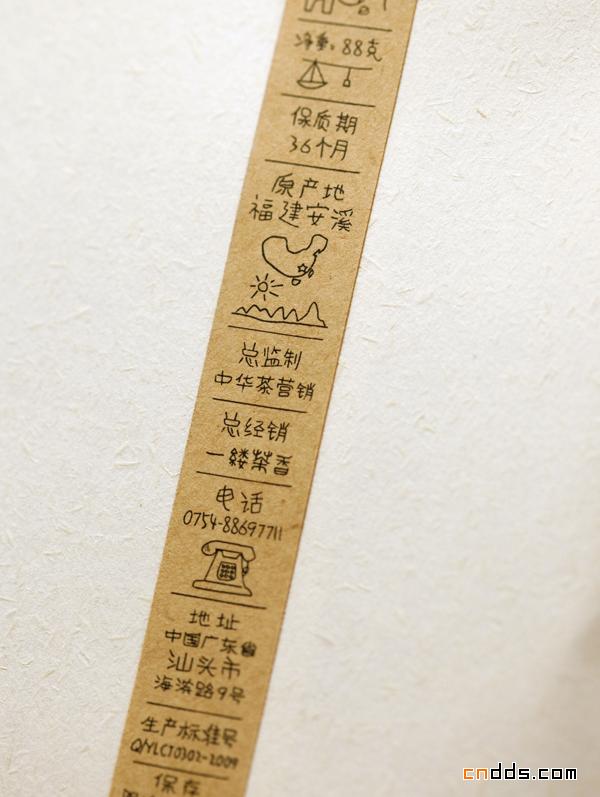 净重：88克
保质期
36个月
原产地
福建安溪
总监制
中华茶营销
总经销
一缕茶香
电话
0754-88697711
地址
中国广东省
汕头市
海滨路9号
生产标准号
Q/YLCT0302-2009
保存
cndds.com